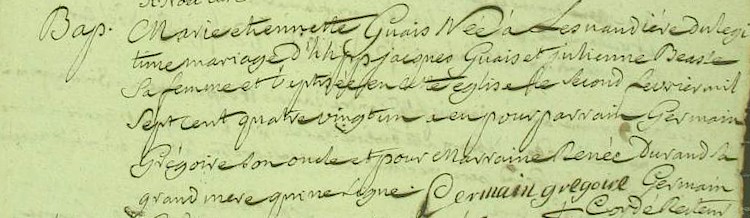 Bap. Marie etiennette Guais Née à Lesnaudiére du legi
time mariage d'hhpp jacques Guais et julienne Beasse
Sa femme et baptisée en cette église le Second fevrier mil
Sept cent quatre vingt un a eu pour parrain Germain
Grégoire Son oncle et pour Marraine Renée Durand Sa
grand mere qui ne Signe. Germain gregoire Germain